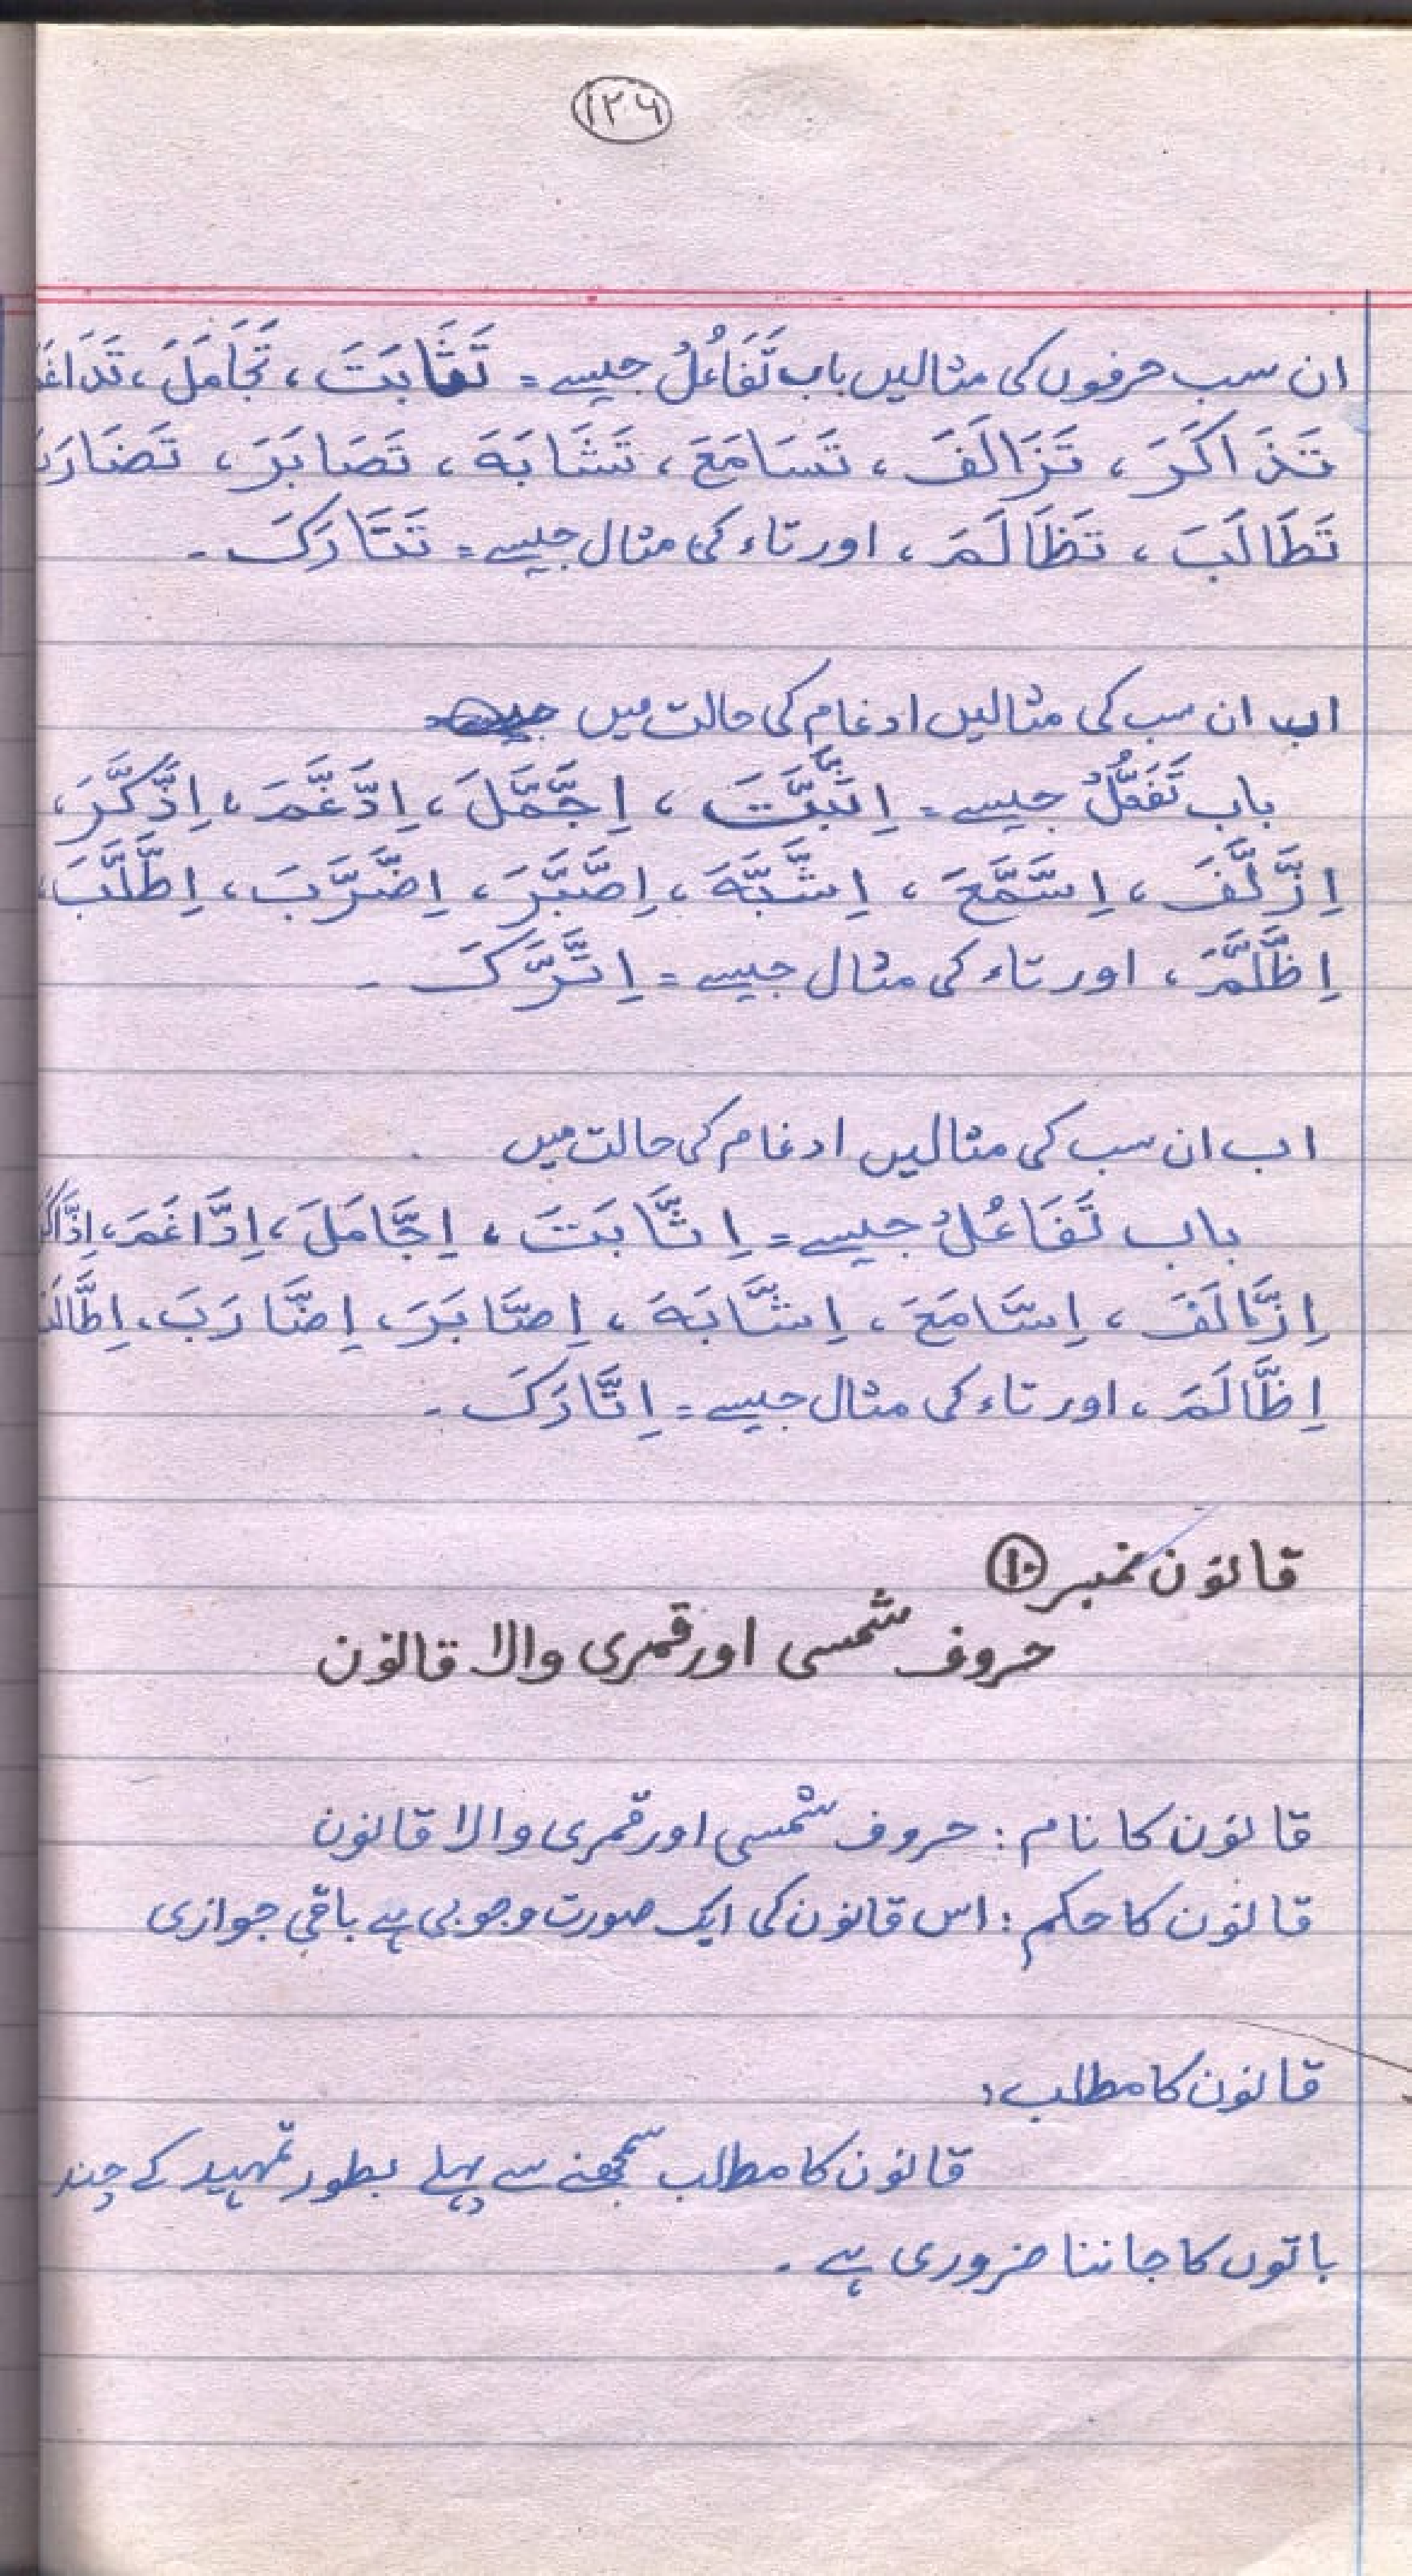 ۱۲۶
ان سب حرفوں کی مثالیں باب تَفَاعُلُ جیسے = تَثَابَتَ ، تَجَامَلَ ، تَدَاغَ
تَذَاكَرَ ، تَزَالَفَ ، تَسَامَعَ ، تَشَابَهَ ، تَصَابَرَ ، تَضَارَبَ
تَطَالَبَ ، تَظَالَمَ ، اور تاء کی مثال جیسے = تَتَارَكَ ۔
اب ان سب کی مثالیں ادغام کی حالت میں
باب تَفَعُّلُ جیسے = اِثَّبَّتَ ، اِجَّمَّلَ ، اِدَّغَّمَ ، اِذَّكَّرَ ،
اِزَّلَّفَ ، اِسَّمَّعَ ، اِشَّبَّهَ ، اِصَّبَّرَ ، اِضَّرَّبَ ، اِطَّلَّبَ ،
اِظَّلَّمَ ، اور تاء کی مثال جیسے = اِتَّرَّكَ ۔
اب ان سب کی مثالیں ادغام کی حالت میں
باب تَفَاعُلُ جیسے = اِثَّابَتَ ، اِجَّامَلَ ، اِدَّاغَمَ ، اِذَّاكَ
اِزَّالَفَ ، اِسَّامَعَ ، اِشَّابَهَ ، اِصَّابَرَ ، اِضَّارَبَ ، اِطَّالَبَ
اِظَّالَمَ ، اور تاء کی مثال جیسے = اِتَّارَكَ ۔
قانون نمبر ۱۰
حروف شمسی اور قمری والا قانون
قانون کا نام : حروف شمسی اور قمری والا قانون
قانون کا حکم : اس قانون کی ایک صورت وجوبی ہے باقی جوازی
قانون کا مطلب :
قانون کا مطلب سمجھنے سے پہلے بطور تمہید کے چند
باتوں کا جاننا ضروری ہے ۔